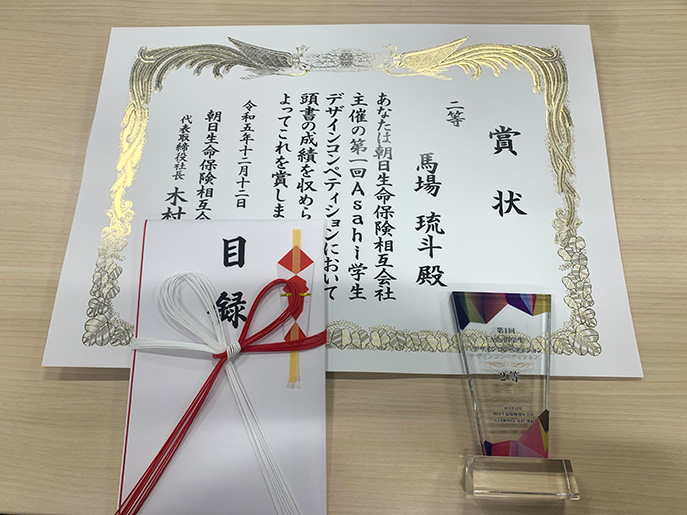 賞状
二等
馬場 琉斗 殿
あなたは朝日生命保険相互会社
主催の第一回Asahi学生
デザインコンペティションにおいて
頭書の成績を収めら
よってこれを賞しま
令和五年十二月十二日
朝日生命保険相互会
代表取締役社長 木村
目録
第1回
2等